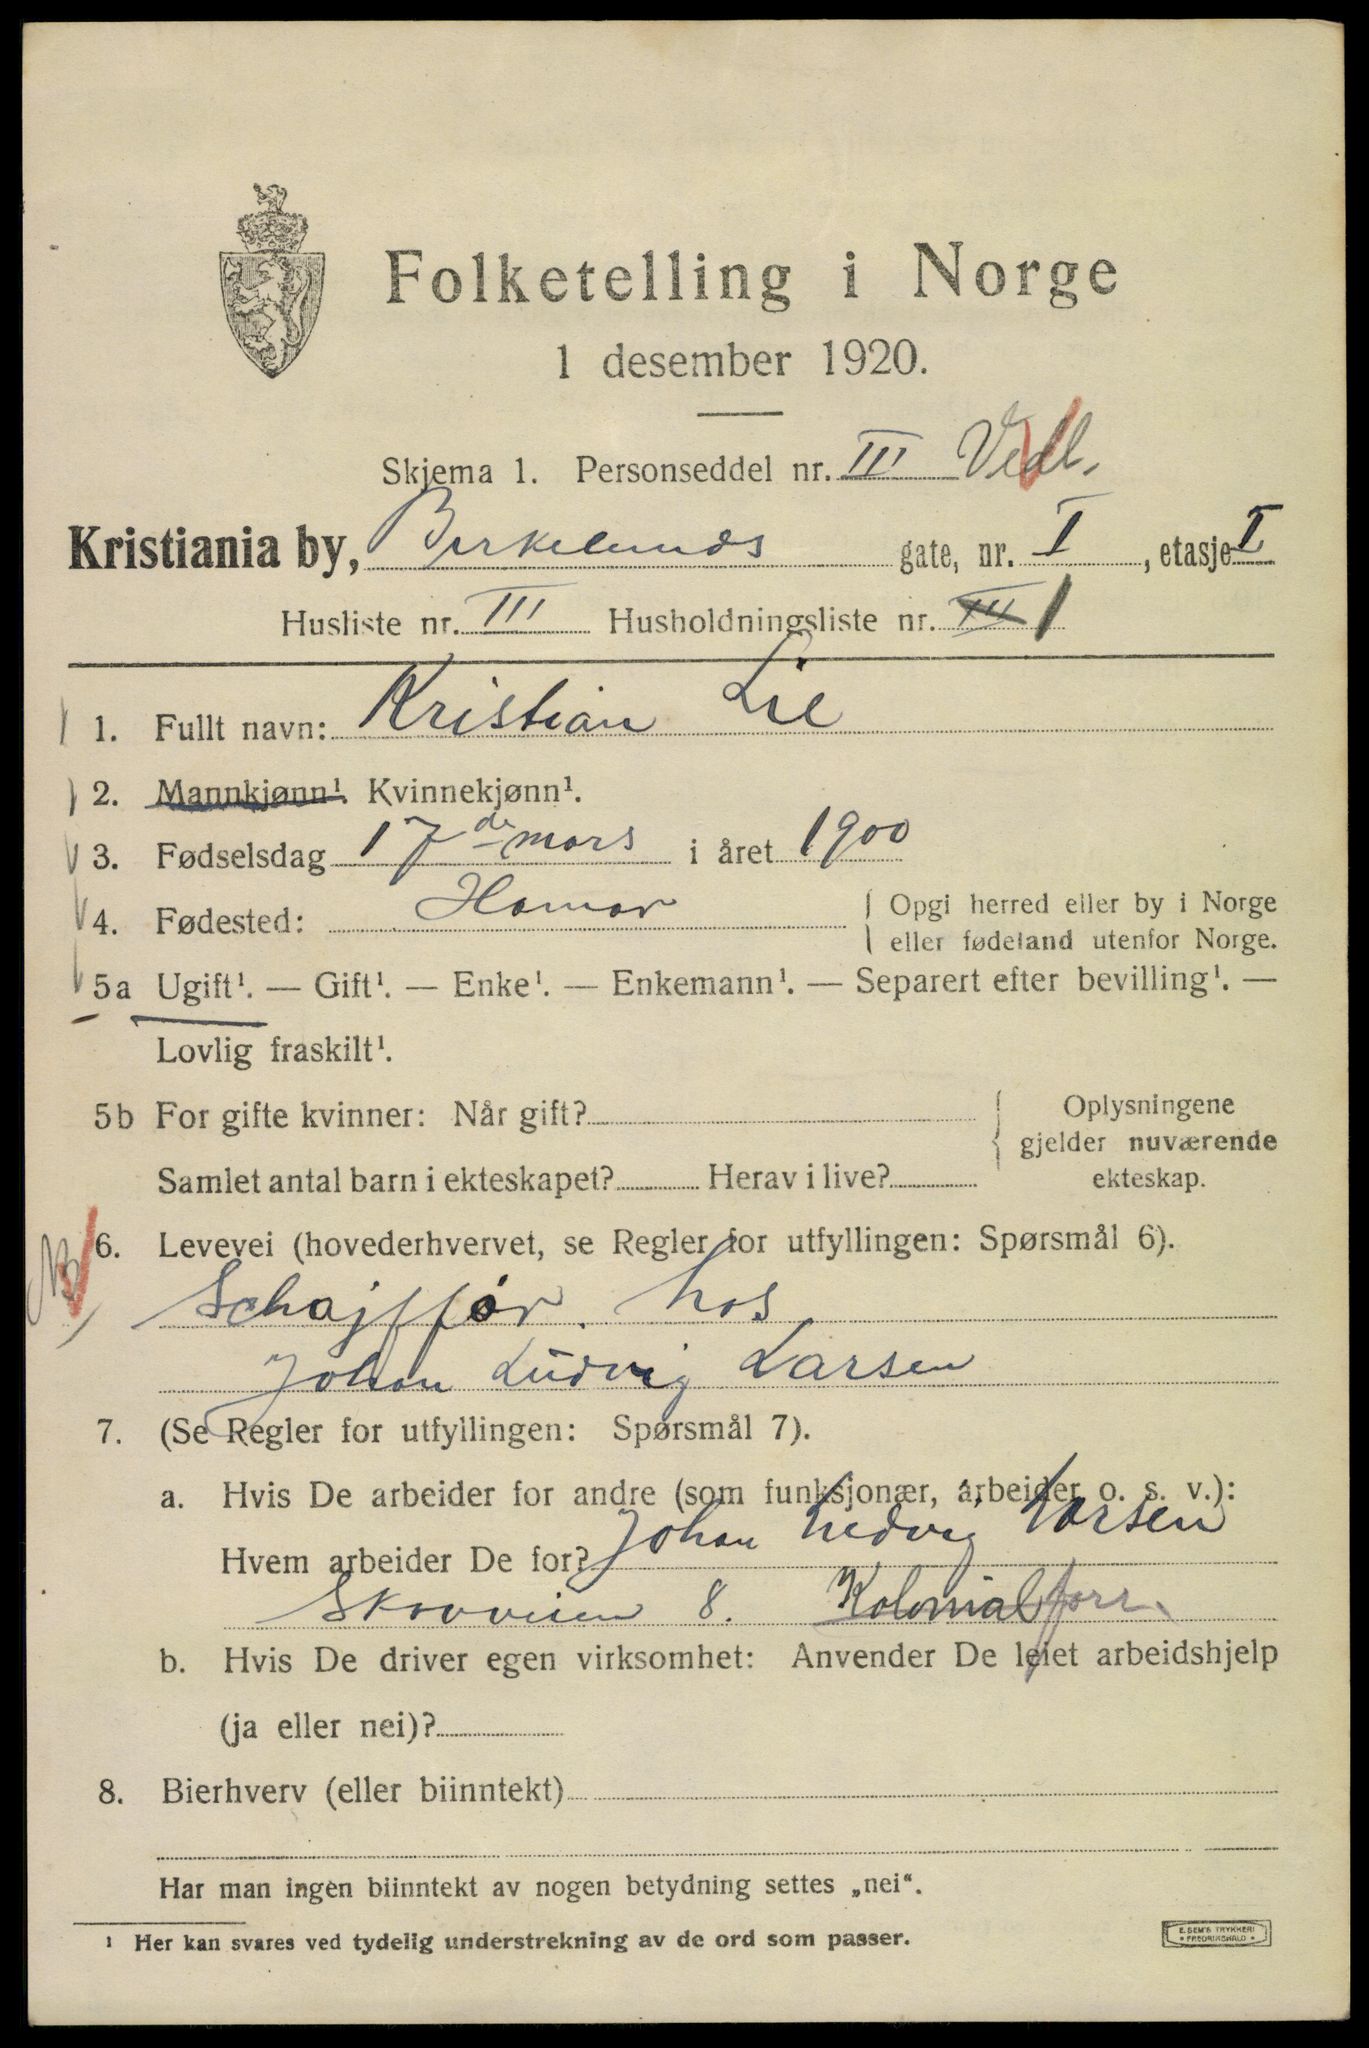 Folketelling i Norge
1 desember 1920.
Skjema 1. Personseddel nr. III Vedl.
Kristiania by, Birkelunds gate, nr. I, etasje I
Husliste nr. III Husholdningsliste nr. III 1
1. Fullt navn: Kristian Lie
2. Mannkjønn¹. Kvinnekjønn¹.
3. Fødselsdag 17de mars i året 1900
4. Fødested: Hamar
Opgi herred eller by i Norge
eller fødeland utenfor Norge.
5a Ugift¹. — Gift¹. — Enke¹. — Enkemann¹. — Separert efter bevilling¹. —
Lovlig fraskilt¹.
5b For gifte kvinner: Når gift?
Samlet antal barn i ekteskapet? Herav i live?
Oplysningene
gjelder nuværende
ekteskap.
NB
6. Levevei (hovederhvervet, se Regler for utfyllingen: Spørsmål 6).
Schajffør. hos
Johan Ludvig Larsen
7. (Se Regler for utfyllingen: Spørsmål 7).
a. Hvis De arbeider for andre (som funksjonær, arbeider o. s. v.):
Hvem arbeider De for? Johan Ludvig Larsen
Skovveien 8. Kolonialforr.
b. Hvis De driver egen virksomhet: Anvender De leiet arbeidshjelp
(ja eller nei)?
8. Bierhverv (eller biinntekt)
Har man ingen biinntekt av nogen betydning settes „nei".
¹ Her kan svares ved tydelig understrekning av de ord som passer.
E. SEM'S TRYKKERI
FREDRIKSHALD